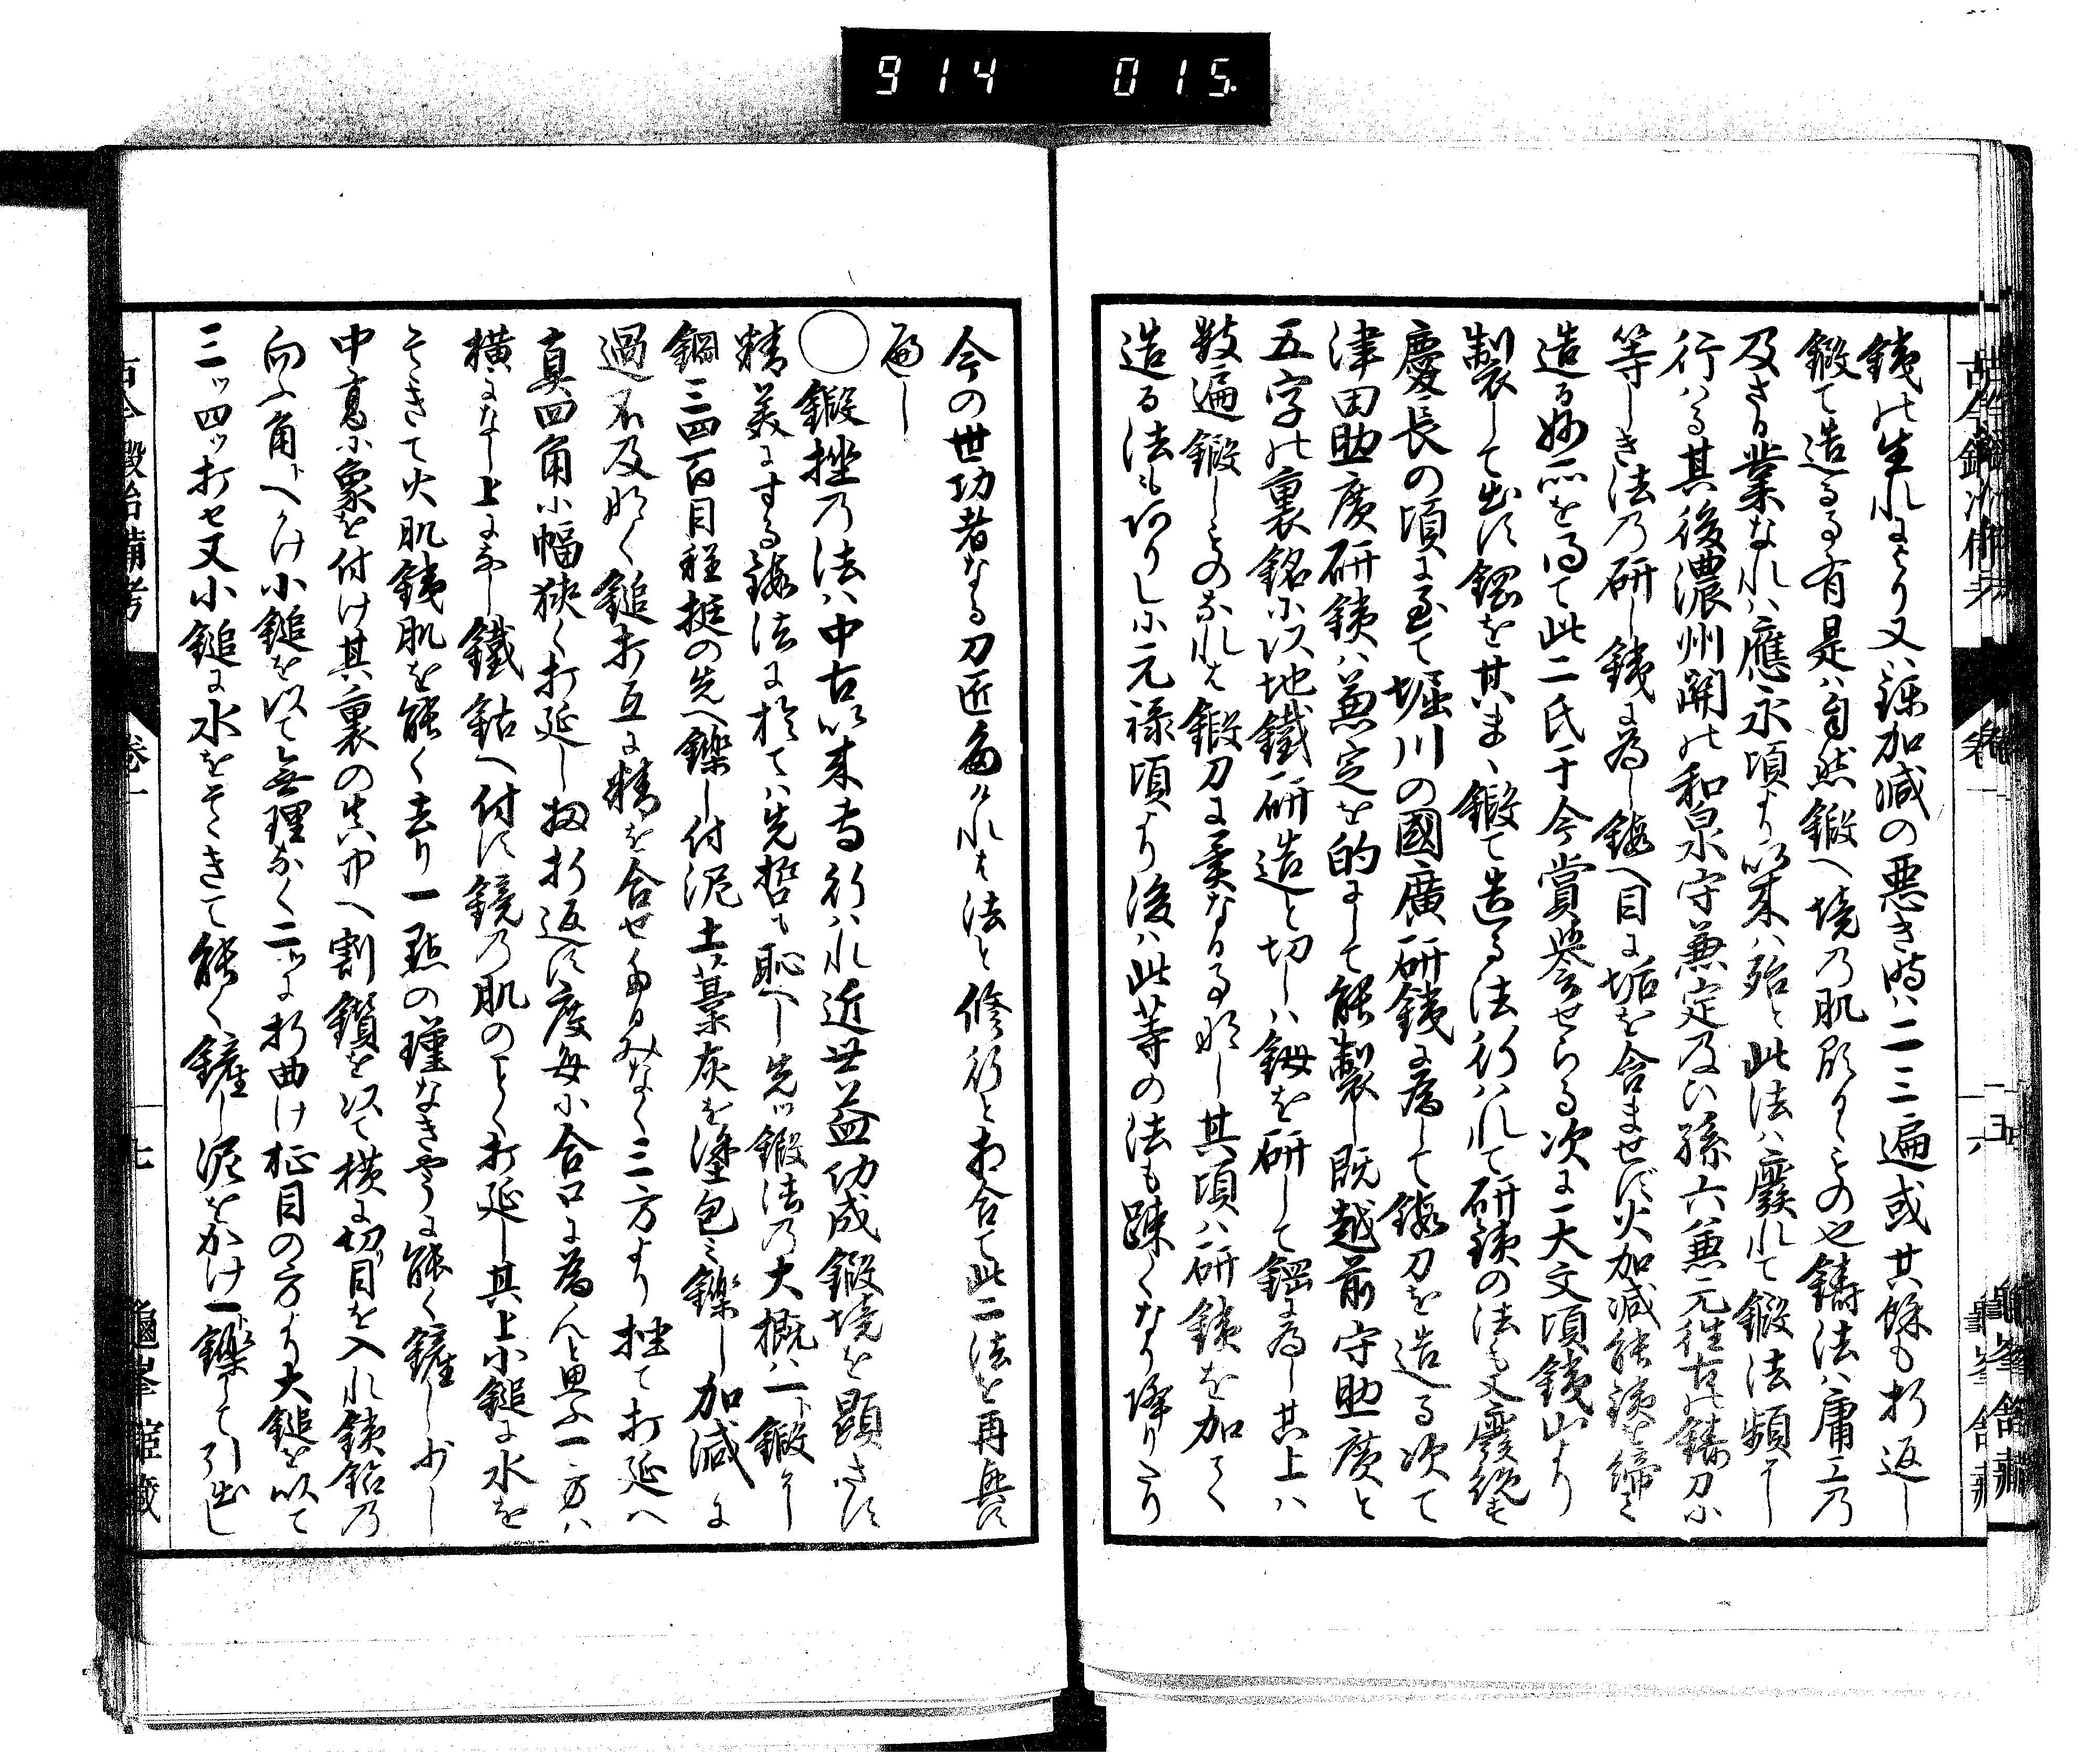 914 015
銕の生れより又ハ錬加減の悪き時ハ二三遍或其餘も折返し
鍛て造るも有是ハ自然鍛へ境乃肌顕るゝもの也鑄法ハ庸工乃
及さる業なれハ應永頃より以来ハ殆と此法ハ廢れて鍛法頻に
行ハる其後濃州關の和泉守兼定及ひ孫六兼元往古の鑄刀小
等しき法乃研し銕に為し鍛へ目に垢を含ませず火加減能銕を締て
造る妙所を得て此二氏于今賞誉せらる次に大文頃銕山より
製して出す鋼を其まゝ鍛て造る法行ハれて研銕の法も又廢絶す
慶長の頃に至て堀川の國廣研銕に為して鍛刀を造る次て
津田助廣研銕ハ兼定を的にして能製し既越前守助廣と
五字の裏銘小以地鐵研造と切しハ鉧を研して鋼に為し其上ハ
数遍鍛しものなれは鍛刀に柔なる事なし其頃ハ研銕を加て
造る法も何りし小元禄頃より後ハ此等の法も疎くなり降りたり
古今鍛冶備考 卷一 一六 龜峯舘藏
今の世功者なる刀匠多けれは法と修行と相合て此二法を再興す
遍し
◯鍛挫乃法ハ中古以来専行ハれ近世益功成鍛境を顕さす
精美にする鍛法に於てハ先哲も恥へし先ッ鍛法乃大概ハ一ト鍛に
鋼三四百目程挺の先へ鑠し付泥土藁灰を塗包ミ鑠し加減に
過不及なく鎚打互に精を合せ角みなく三方より挫て打延へ
真四角小幅狭く打延し扨折返す度毎小合口に為んと思ふ一方ハ
横になし上に平し鐵鈷へ付す鏡乃肌のことく打延し其上小鎚に水を
そゝきて火肌銕肌を能く去り一點の瑾なきやうに能く鏟し少し
中高小象を付け其裏の真中へ割鑽を以て横に切目を入れ銕鈷乃
向ふ角トへかけ小鎚を以て無理なく二ッに折曲け柾目の方より大鎚を以て
三ッ四ッ打せ又小鎚に水をそゝきて能く鏟し泥をかけ一ト鑠して引出し
古今鍛冶備考 卷一 一七 龜峯舘藏